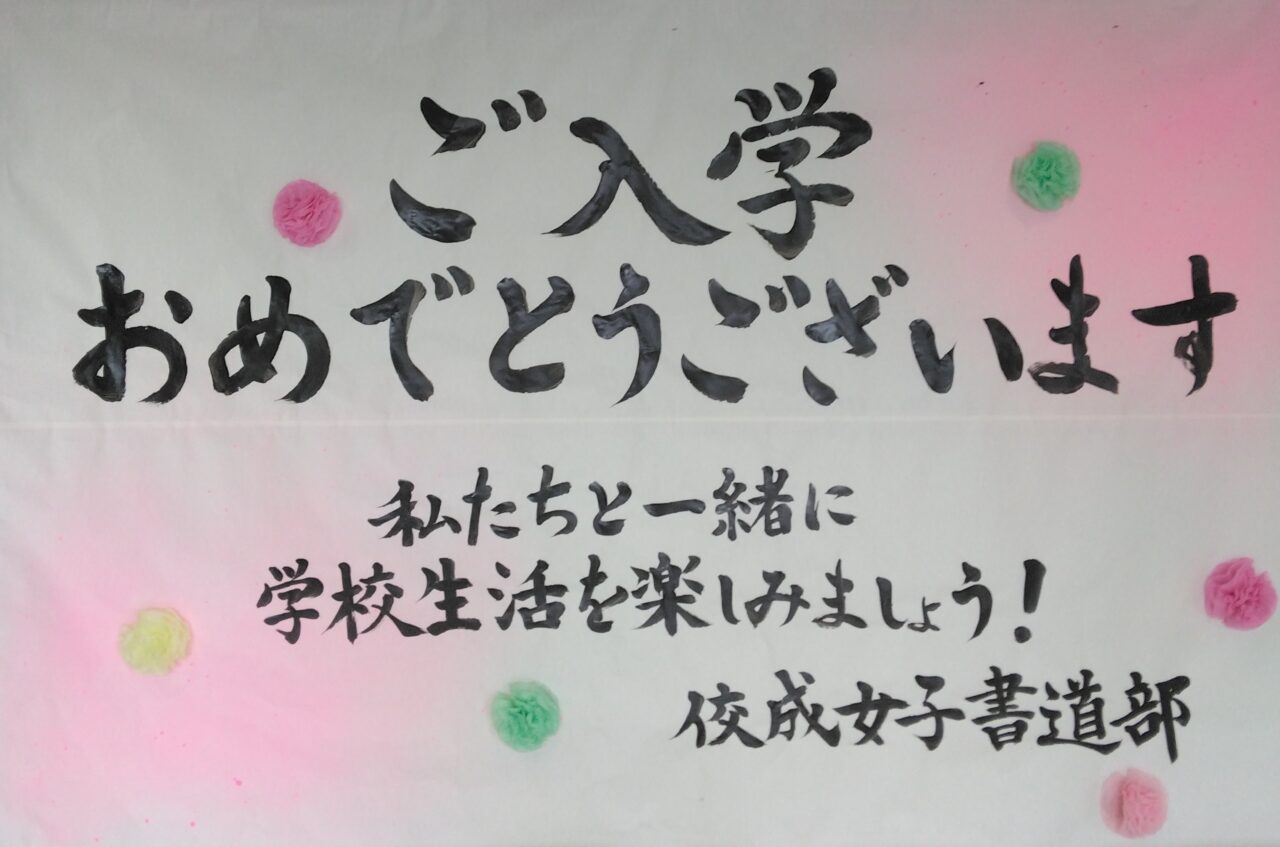 ご入学
おめでとうございます
私たちと一緒に
学校生活を楽しみましょう!
佼成女子書道部